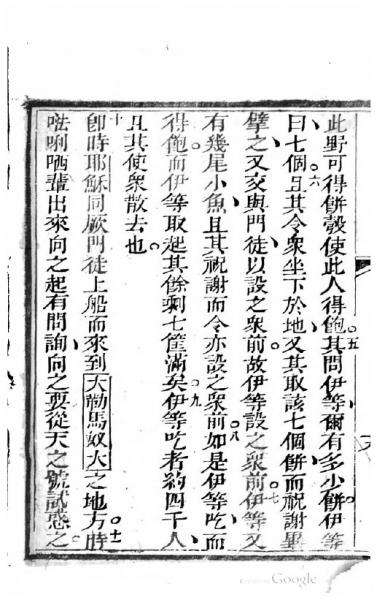 此野可得餅彀使此人得飽。五其問伊等爾有多少餅伊等
曰七個。六且其令眾坐下於地又其取該七個餅而祝謝畢
擘之又交與門徒以設之眾前故伊等設之眾前。七伊等又
有幾尾小魚且其祝謝而令亦設之眾前如是。八伊等吃而
得飽而伊等取起其餘剩七筐滿矣。九伊等吃者約四千人
且其使眾散去也。
十即時耶穌同厥門徒上船而來到大嘞馬奴大之地方。十一時
𠵽唎哂輩出來向之起有問詢向之要從天之號試惑之
Google